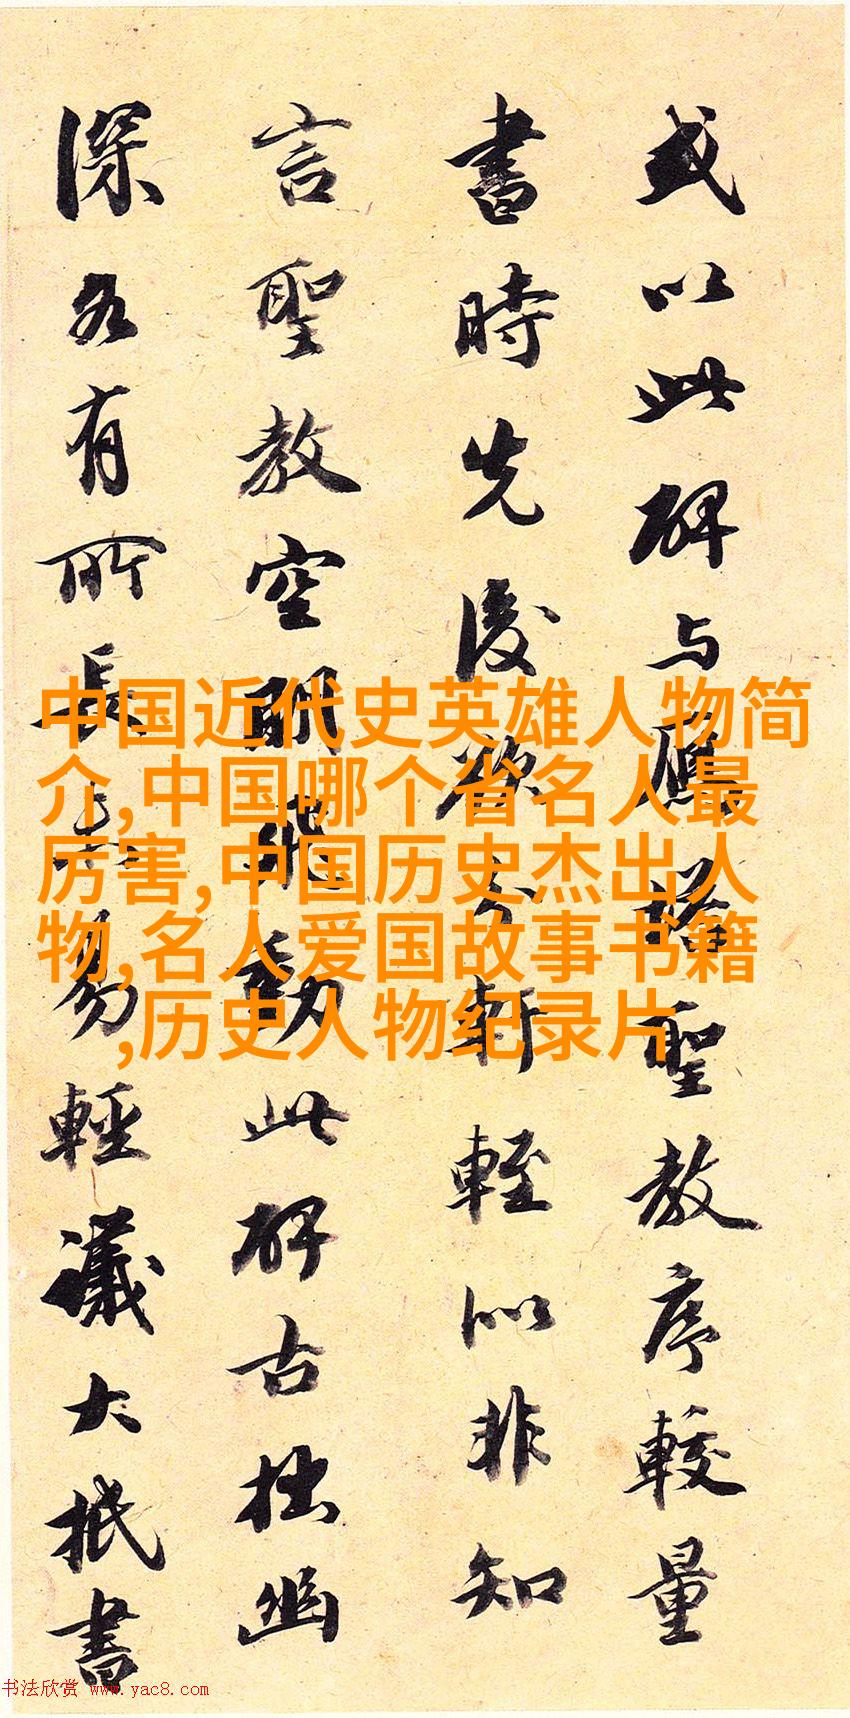 或以此碑与鴈塔聖教序較量
書時先後欲分軒輊似非知
言聖教空明飛動此碑古拙幽
深各有所長未易輕議大抵書
中国近代史英雄人物简
介,中国哪个省名人最
厉害,中国历史杰出人
物,名人爱国故事书籍
,历史人物纪录片
书法欣赏 www.yac8.com